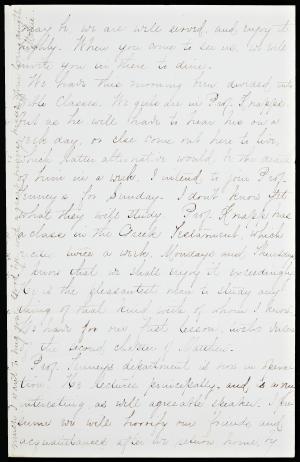 may be, we are well served, and enjoy it
highly. When you come to see us, we will
invite you in there to dine.
We have this morning been divided into
Bible Classes. We girls are in Prof. Knapp's
but as he will have to hear his on a
week day, or else come out here to live,
which latter alternative would be the death
of him in a week, I intend to join Prof.
Tenney's for Sunday. I don't know yet
what they will study. Prof. Knapp has
a class in the Greek Testament, which
recites twice a week, Mondays and Thursdays
I know that we shall enjoy it exceedingly
He is the pleasantest man to study any
thing of that kind with of whom I know.
We have for our first lesson, twelve verses
of the second chapter of Matthew.
Prof. Tenney's department is now in opera-
tion. He lectures principally, and is a very
interesting as well agreeable speaker. I pre
sume we will horrify our friends and
acquaintances after we return home, by